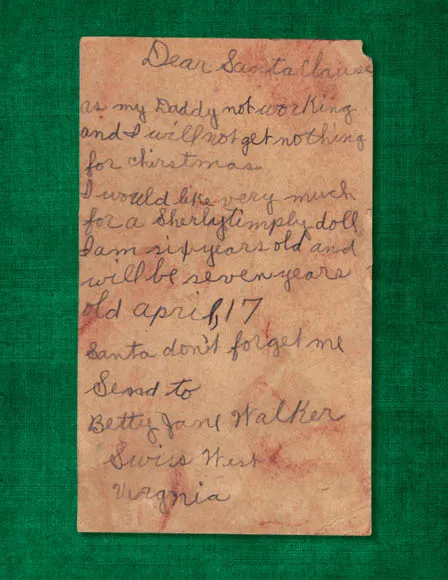 Dear Santa Clause
as my Daddy not working
and I will not get nothing
for chirstmas.
I would like very much
for a Sherlytimply doll
I am six years old and
will be seven years
old april, 17
Santa don't forget me
Send to
Betty Jane Walker
Swiss West
Virgnia